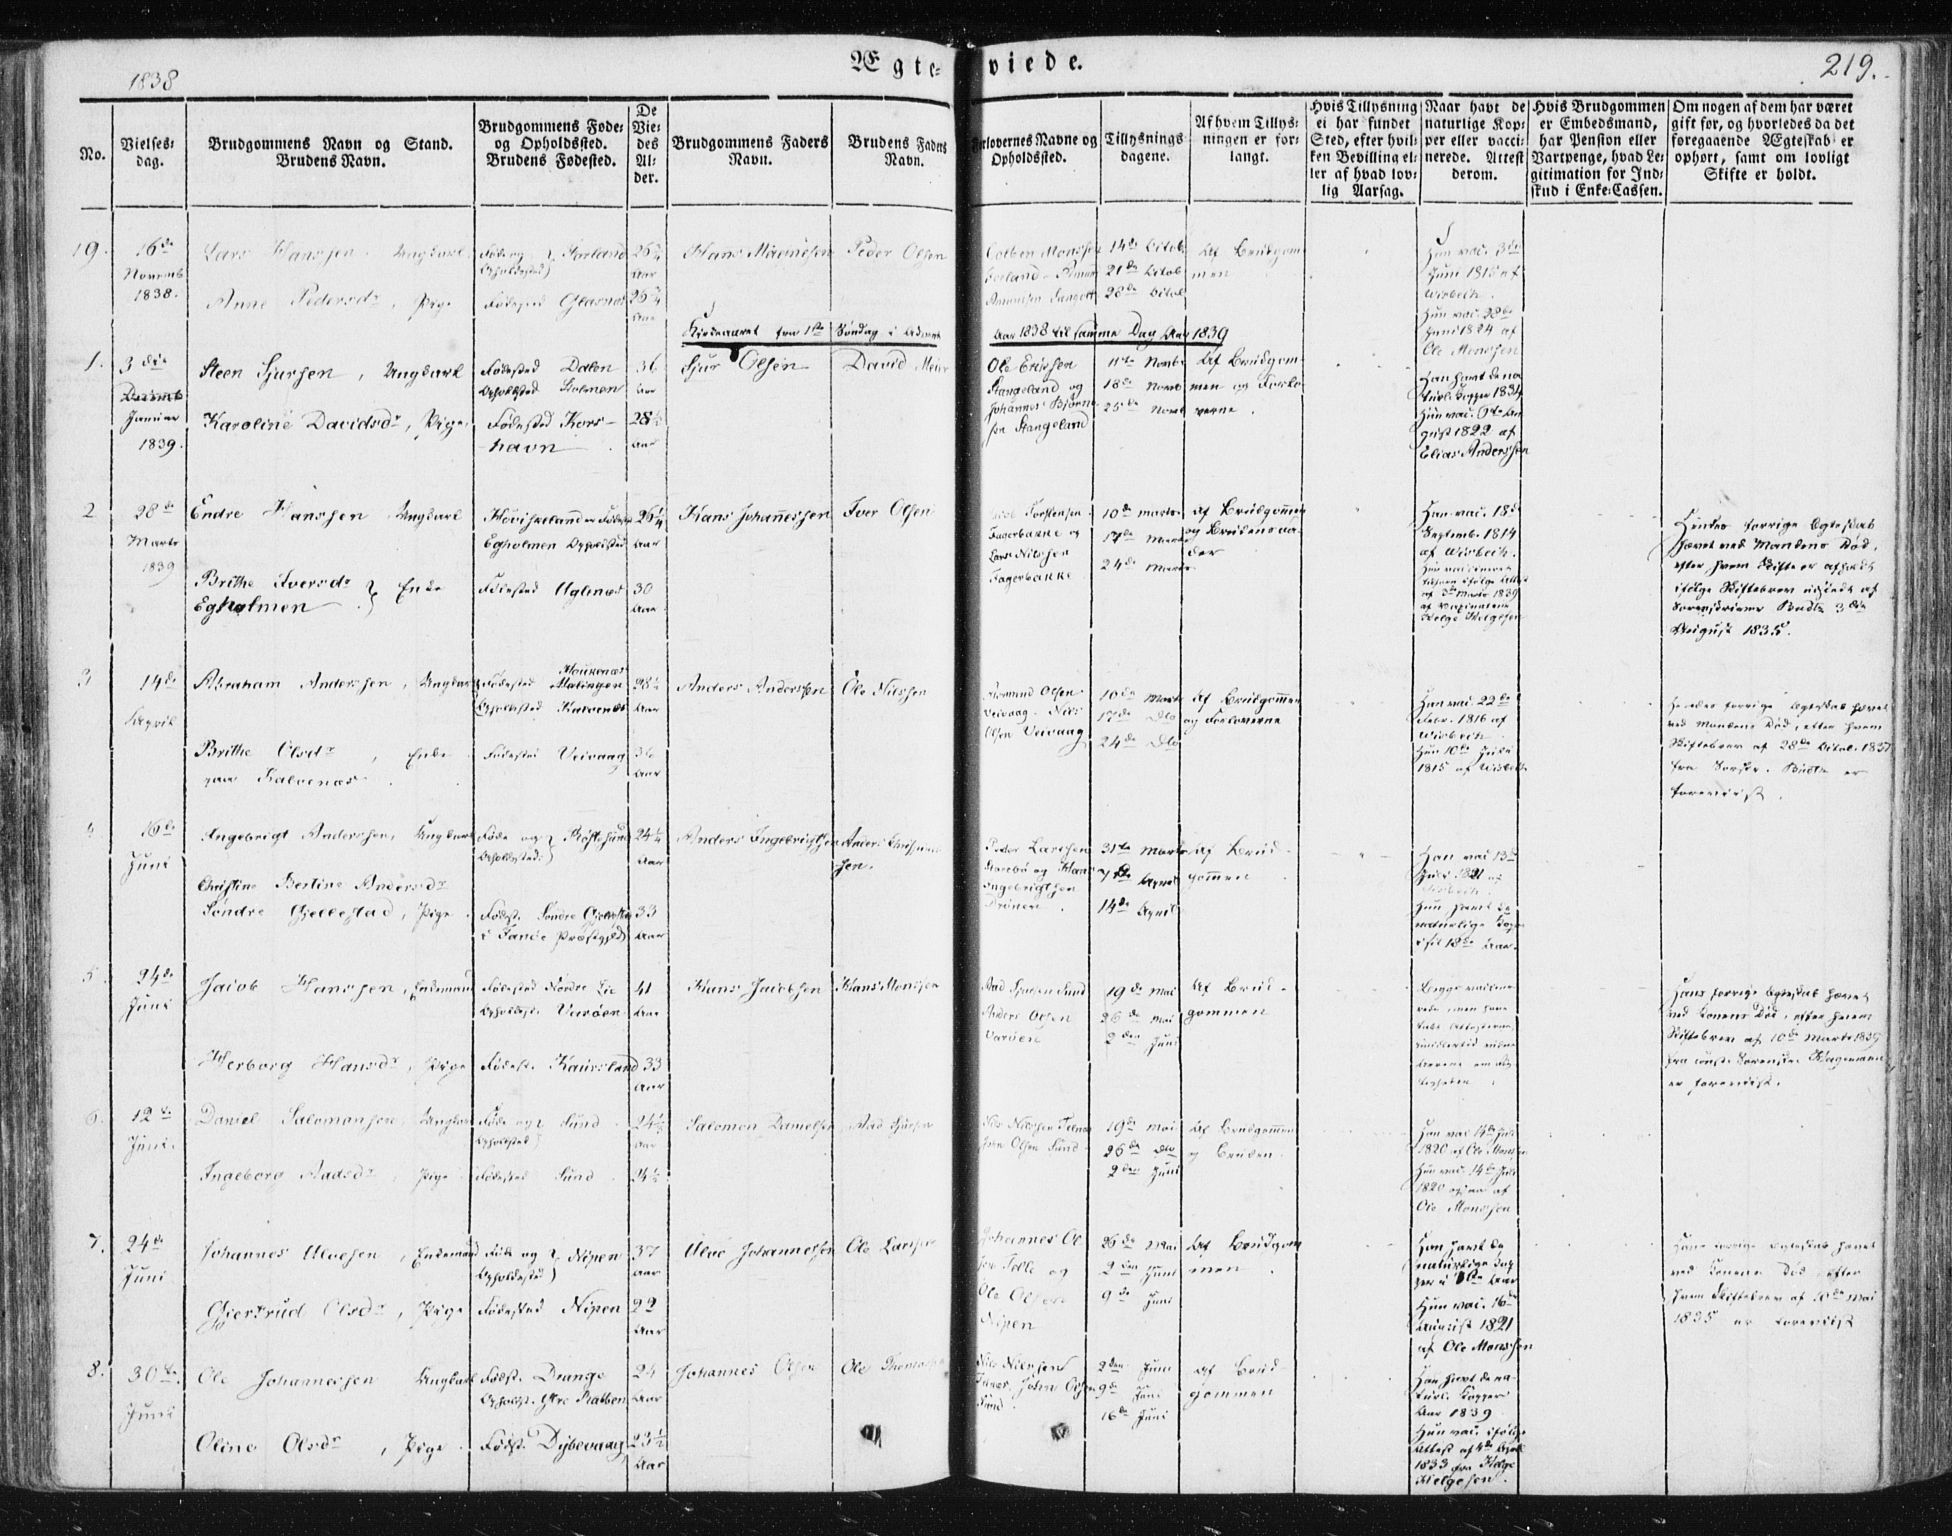 1838
Ægte-
viede.
219.
No.
Vielses-
dag.
Brudgommens Navn og Stand.
Brudens Navn.
Brudgommens Føde-
og Opholdssted.
Brudens Fødested.
De
Vie-
des
Al-
der.
Brudgommens Faders
Navn.
Brudens Faders
Navn.
Forlovernes Navne og
Opholdssted.
Tillysnings
dagene.
Af hvem Tillys-
ningen er for-
langt.
Hvis Tillysning
ei har fundet
Sted, efter hvil-
ken Bevilling el-
ler af hvad lov-
lig Aarsag.
Naar havt de
naturlige Kop-
per eller vacci-
nerede. Attest
derom.
Hvis Brudgommen
er Embedsmand,
har Pension eller
Vartpenge, hvad Le-
gitimation for Ind-
skud i Enke-Cassen.
Om nogen af dem har været
gift før, og hvorledes da det
foregaaende Ægteskab er
ophørt, samt om lovligt
Skifte er holdt.
19.
16de
Novemb
1838.
Lars Hanssen, Ungkarl
Anne Pedersdr, Pige
Føde og
Opholdssted
Fødested
26
Aar
26
Aar
Peder Olsen
14de Octob
21de Octob
28de Octob
Af Brudgom
men
Han vac. 3die
Juni 1815 af
Wisbech.
Hun vac. 28de
Juni 1824 af
Ole Monssen
Kirkeaaret fra 1ste Søndag i Advent
Aar 1838 til samme Dag Aar 1839
1.
3die
Januar
1839.
Steen Sjursen, Ungkarl
Karoline Davidsdr, Pige
Fødested Dalen
Opholdsted Holmen
Fødested Kors-
havn
36
Aar
28½
Aar
Sjur Olsen
David Meier
Ole Erichsen
Stangeland og
Johannes Bjørne-
sen Stangeland
11te Novbr
18de Novb
25de Novb
Af Brudgom-
men og Forlo
verne.
Han havt de na
turl. Kopper 1834
Hun vac. 6te Au
gust 1822 af
Elias Anderssen
2
28de
Marts
1839
Endre Hanssen Ungkarl
Brithe Iversdr Enke
Egholmen
Egholmen Opholdsted
Fødested Uglenæs
26¼
Aar
30
Aar
Hans Johannessen
Iver Olsen
Torstensen
Fagerbakke og
Lars Nilssen
Fagerbakke
10de Marts
17de Marts
24de Marts
af Brudgommen
og Brudens Fa
der
Han vac. 18de
Septemb. 1814
af Wisbech.
af 3die Marts 1839
af Vaccinateur
Helge Helgesen
Hendes forrige Egteskab
hævet ved Mandens Død,
efter hvem Skifte er afholdt
ifølge Skiftebrev udstedt af
Sorenskriver Budtz 3die
August 1835.
3
14de
April
Abraham Anderssen, Ungkarl
Brithe Olsdr, Enke
paa Kalvenæs.
Fødested
Opholdsted Kalvenæs
Fødested Veivaag
28½
Aar
36
Aar
Anders Anderssen
Ole Nilssen
Olsen
Veivaag. Niels
Olsen Veivaag
10de Marts
17de Dto
24de Dto
Af Brudgommen
og Forloverne
Han vac. 22de
Febr. 1816 af
Wisbech.
Hun 10de Juli
1815 af Wisbech
Hendes forrige Egteskab hævet
ved Mandens Død, efter hvem
Skiftebrev af 28de Octob. 1837
fra Sorskr. Budtz er
foreviist.
4
16de
Juni
Ingebrigt Anderssen, Ungkarl
Christine Bertine Andersdr
Søndre Gjellestad, Pige
Føde og
Opholdsted
Fødst. Søndre Gjellestad
i Fanøe Præstegjeld
24¼
Aar
33
Aar
Anders Ingebrigtsen
Anders Christian
sen.
Peder Larssen
og Hans
Ingebrigtsen
31te Marts
7de April
14de April
Af Brud-
gommen
Han vac 13de
Juli 1821 af
Wisbech
Hun havt de
naturlige Kop
5
24de
Juni
Jacob Hanssen, Enkemand
Herborg Hansdr, Pige
Fødested Nordre Lie
Opholdst. Værøen
Fødest. Kaursland
41
Aar
33
Aar
Hans Jacobsen
Hans Monssen
Aad Sjursen Sund
Anders Olsen
Værøen
19de Mai
26de Mai
2den Juni
Af Brud-
gommen
Hans forrige Egteskab hævet
ved Konens Død, efter hvem
Skiftebrev af 10de Marts 1839
fra const. Sorenskr. Hagemann
er foreviist.
6.
12te
Juni.
Daniel Salomonsen, Ungkarl
Ingeborg Aadsdr, Pige
Føde og Sund
Opholdsted
Fødested Sund
24½
Aar
24½
Salomon Danielsen
Aad Sjursen
Nils Nilssen Telnæs
Olsen Sund
19de Mai
26de Dto
2den Juni
Af Brudgommen
og Bruden.
Han vac 14de Juli
1820 af Ole Monssen
Hun vac. 14de Juli
1820 af
Ole Monssen
7.
24de
Juni
Johannes Ulvesen, Enkemand
Gjertrud Olsdr, Pige
Føde og Nipen
Opholdsted
Fødested Nipen
37
Aar
22
Aar
Ulve Johannessen
Ole Larssen
Johannes Ol
sen Telle og
Ole Olsen
Nipen
26de Mai
2den Juni
9de Juni
Af Brudgom
men.
Han havt de
naturlige Kop
Hun vac. 16de
August 1821
af Ole Monssen
Hans forrige Egteskab hævet
ved Konens Død, efter
hvem Skiftebrev af 10de Mai
1835 er foreviist
8.
30te
Juni
Ole Johannessen Ungkarl
Oline Olsdr, Pige.
Fødst. Drange
Opholdst. Ytre Kobben
Fødst. Dybevaag
24
Aar
23½
Aar
Johannes Olsen
Ole Thomassen
Nils Nilssen
John Olsen
Sund
2den Juni
9de Juni
16de Juni
Af Brud-
gommen
Han havt de na-
turl. Kopper
Aar 1839
Hun vac. ifølge
Attest af 4de April
1833 fra Helge
Helgesen.